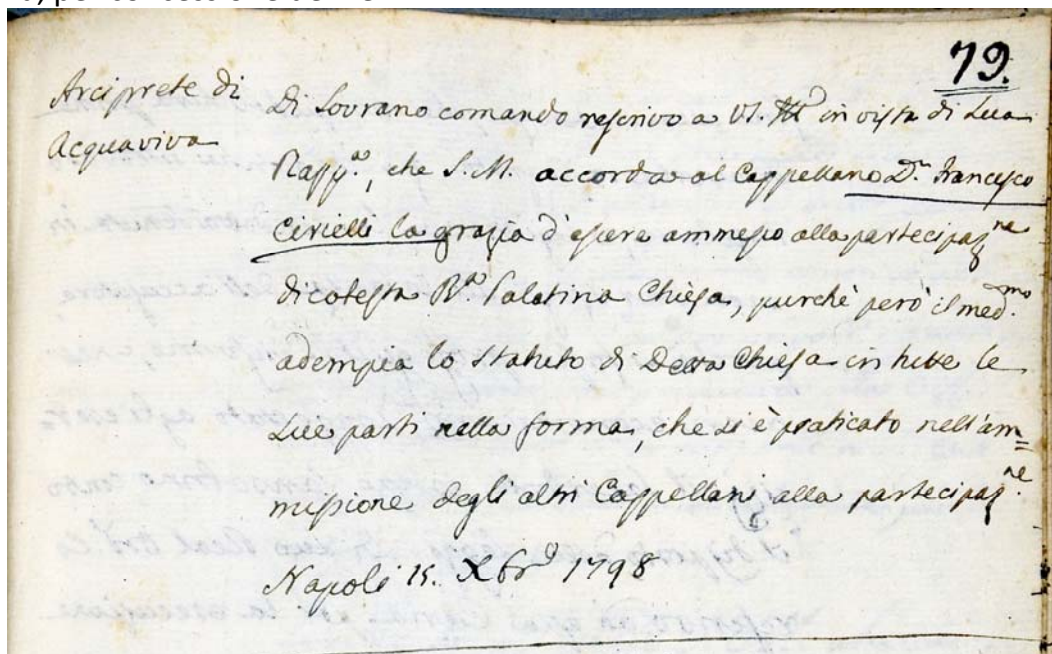 79.
Arciprete di
Acquaviva
Di Sovrano comando rescrivo a VS. Ill. in vista di Sua
Rapp.ª, che S. M. accorda al Cappellano D.n Francesco
Cirielli la grazia d'essere ammesso alla partecipaz.ne
di cotesta R.ª Palatina Chiesa, purchè però il med.mo
adempia lo Statuto di Detta Chiesa in tutte le
Sue parti nella forma, che si è praticato nell'am=
missione degli altri Cappellani alla partecipaz.ne
Napoli 15. Xbr 1798